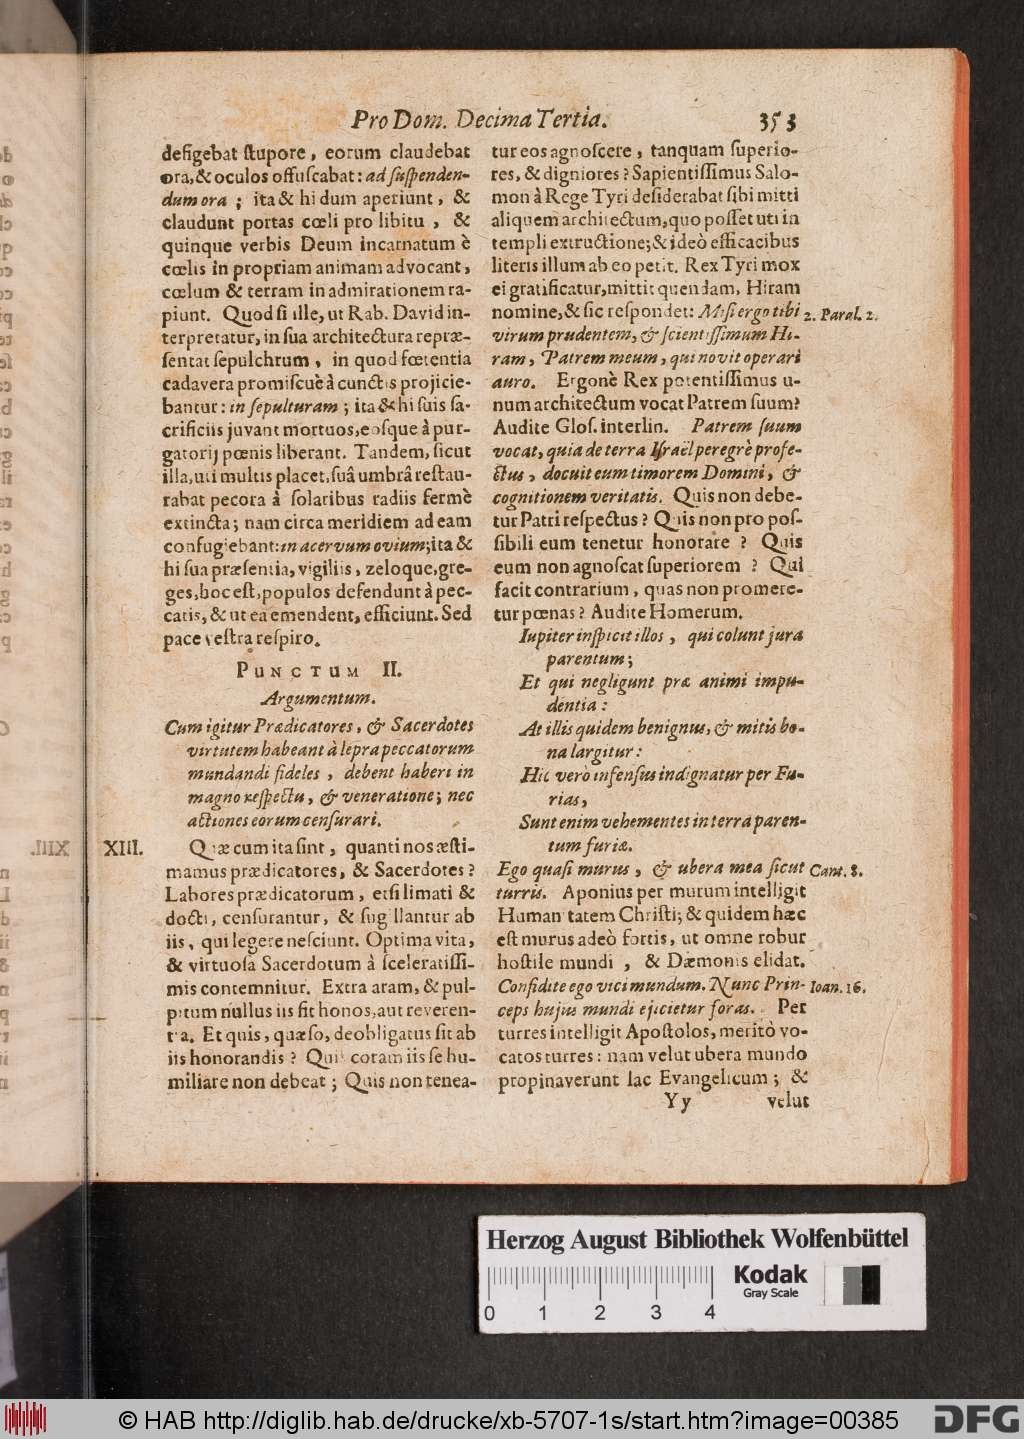 Pro Dom. Decima Tertia. 353
defigebat ſtupore, eorum claudebat
ora, & oculos offuſcabat: ad ſuſpenden-
dum ora ; ita & hi dum aperiunt, &
claudunt portas cœli pro libitu , &
quinque verbis Deum incarnatum è
cœlis in propriam animam advocant,
cœlum & terram in admirationem ra-
piunt. Quod ſi ille, ut Rab. David in-
terpretatur, in ſua architectura repræ-
ſentat ſepulchrum , in quod fœtentia
cadavera promiſcuè à cunctis projicie-
bantur : in ſepulturam ; ita & hi ſuis ſa-
crificiis juvant mortuos, eoſque à pur-
gatorij pœnis liberant. Tandem, ſicut
illa, uti multis placet, ſuâ umbrâ reſtau-
rabat pecora à ſolaribus radiis fermè
extincta; nam circa meridiem ad eam
confugiebant: in acervum ovium; ita &
hi ſua præſentia, vigiliis, zeloque, gre-
ges, hoc eſt, populos defendunt à pec-
catis, & ut ea emendent, efficiunt. Sed
pace veſtra reſpiro.
PUNCTUM II.
Argumentum.
Cum igitur Prædicatores, & Sacerdotes
virtutem habeant à lepra peccatorum
mundandi fideles , debent haberi in
magno reſpectu, & veneratione; nec
actiones eorum cenſurari.
XIII. Quæ cum ita ſint, quanti nos æſti-
mamus prædicatores, & Sacerdotes ?
Labores prædicatorum, etſi limati &
docti, cenſurantur, & ſugillantur ab
iis, qui legere neſciunt. Optima vita,
& virtuoſa Sacerdotum à ſceleratiſſi-
mis contemnitur. Extra aram, & pul-
pitum nullus iis fit honos, aut reveren-
tia. Et quis, quæſo, deobligatus ſit ab
iis honorandis ? Quis coram iis ſe hu-
miliare non debeat ; Quis non tenea-
tur eos agnoſcere, tanquam ſuperio-
res, & digniores ? Sapientiſſimus Salo-
mon à Rege Tyri deſiderabat ſibi mitti
aliquem architectum, quo poſſet uti in
templi extructione; & ideò efficacibus
literis illum ab eo petit. Rex Tyri mox
ei gratificatur, mittit quendam, Hiram
nomine, & ſic reſpondet: Miſi ergo tibi 2. Paral. 2.
virum prudentem, & ſcientiſſimum Hi-
ram, Patrem meum, qui novit operari
auro. Ergonè Rex potentiſſimus u-
num architectum vocat Patrem ſuum?
Audite Gloſ. interlin. Patrem ſuum
vocat, quia de terra Iſraël peregrè profe-
ctus , docuit eum timorem Domini, &
cognitionem veritatis. Quis non debe-
tur Patri reſpectus ? Quis non pro poſ-
ſibili eum tenetur honorare ? Quis
eum non agnoſcat ſuperiorem ? Qui
facit contrarium, quas non promere-
tur pœnas ? Audite Homerum.
Iupiter inſpicit illos , qui colunt jura
parentum ;
Et qui negligunt præ animi impu-
dentia :
At illis quidem benignus, & mitis bo-
na largitur :
Hic verò infenſus indignatur per Fu-
rias,
Sunt enim vehementes in terra paren-
tum furiæ.
Ego quaſi murus , & ubera mea ſicut Cant. 8.
turris. Aponius per murum intelligit
Humanitatem Chriſti; & quidem hæc
eſt murus adeò fortis, ut omne robur
hoſtile mundi , & Dæmonis elidat.
Confidite ego vici mundum. Nunc Prin- Ioan. 16.
ceps hujus mundi ejicietur foras. Per
turres intelligit Apoſtolos, meritò vo-
catos turres : nam velut ubera mundo
propinaverunt lac Evangelicum ; &
Yy velut
Herzog August Bibliothek Wolfenbüttel
Kodak
Gray Scale
0 1 2 3 4
© HAB http://diglib.hab.de/drucke/xb-5707-1s/start.htm?image=00385
DFG